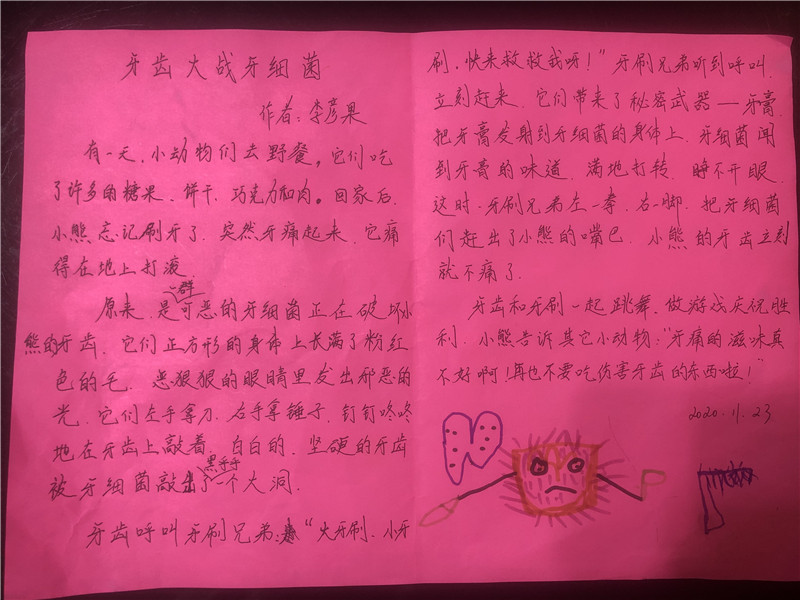 牙齿大战牙细菌
作者：李彦果
有一天，小动物们去野餐。它们吃
了许多的糖果、饼干、巧克力和肉。回家后，
小熊忘记刷牙了，突然牙痛起来，它痛
得在地上打滚。
原来，是一群可恶的牙细菌正在破坏小
熊的牙齿，它们正方形的身体上长满了粉红
色的毛，恶狠狠的眼睛里发出邪恶的
光，它们左手拿刀，右手拿锤子，钉钉咚咚
地在牙齿上敲着，白白的、坚硬的牙齿
被牙细菌敲出了一个黑乎乎大洞。
牙齿呼叫牙刷兄弟：“大牙刷、小牙
刷，快来救救我呀！”牙刷兄弟听到呼叫，
立刻赶来，它们带来了秘密武器——牙膏，
把牙膏发射到牙细菌的身体上，牙细菌闻
到牙膏的味道，满地打转，睁不开眼，
这时，牙刷兄弟左一拳，右一脚，把牙细菌
们赶出了小熊的嘴巴，小熊的牙齿立刻
就不痛了。
牙齿和牙刷一起跳舞、做游戏庆祝胜
利，小熊告诉其它小动物：“牙痛的滋味真
不好啊！再也不要吃伤害牙齿的东西啦！”
2020.11.23